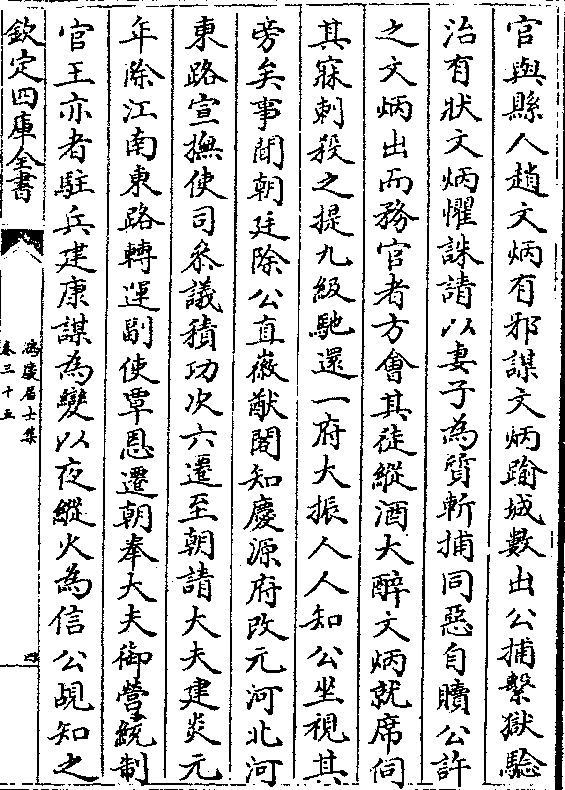 官與縣人趙文炳有邪謀文炳踰城數出公捕繫獄驗
治有狀文炳懼誅請以妻子為質斬捕同惡自贖公許
之文炳出而務官者方會其徒縱酒大醉文炳就席伺
其寐刺殺之提九級馳還一府大振人人知公坐視其
旁矣事聞朝廷除公直徽猷閣知慶源府改元河北河
東路宣撫使司叅議積功次六遷至朝請大夫建炎元
年除江南東路轉運副使覃恩遷朝奉大夫御營統制
官王亦者駐兵建康謀為變以夜縱火為信公覘知之
欽定四庫全書
鴻慶居士集
卷三十五
四